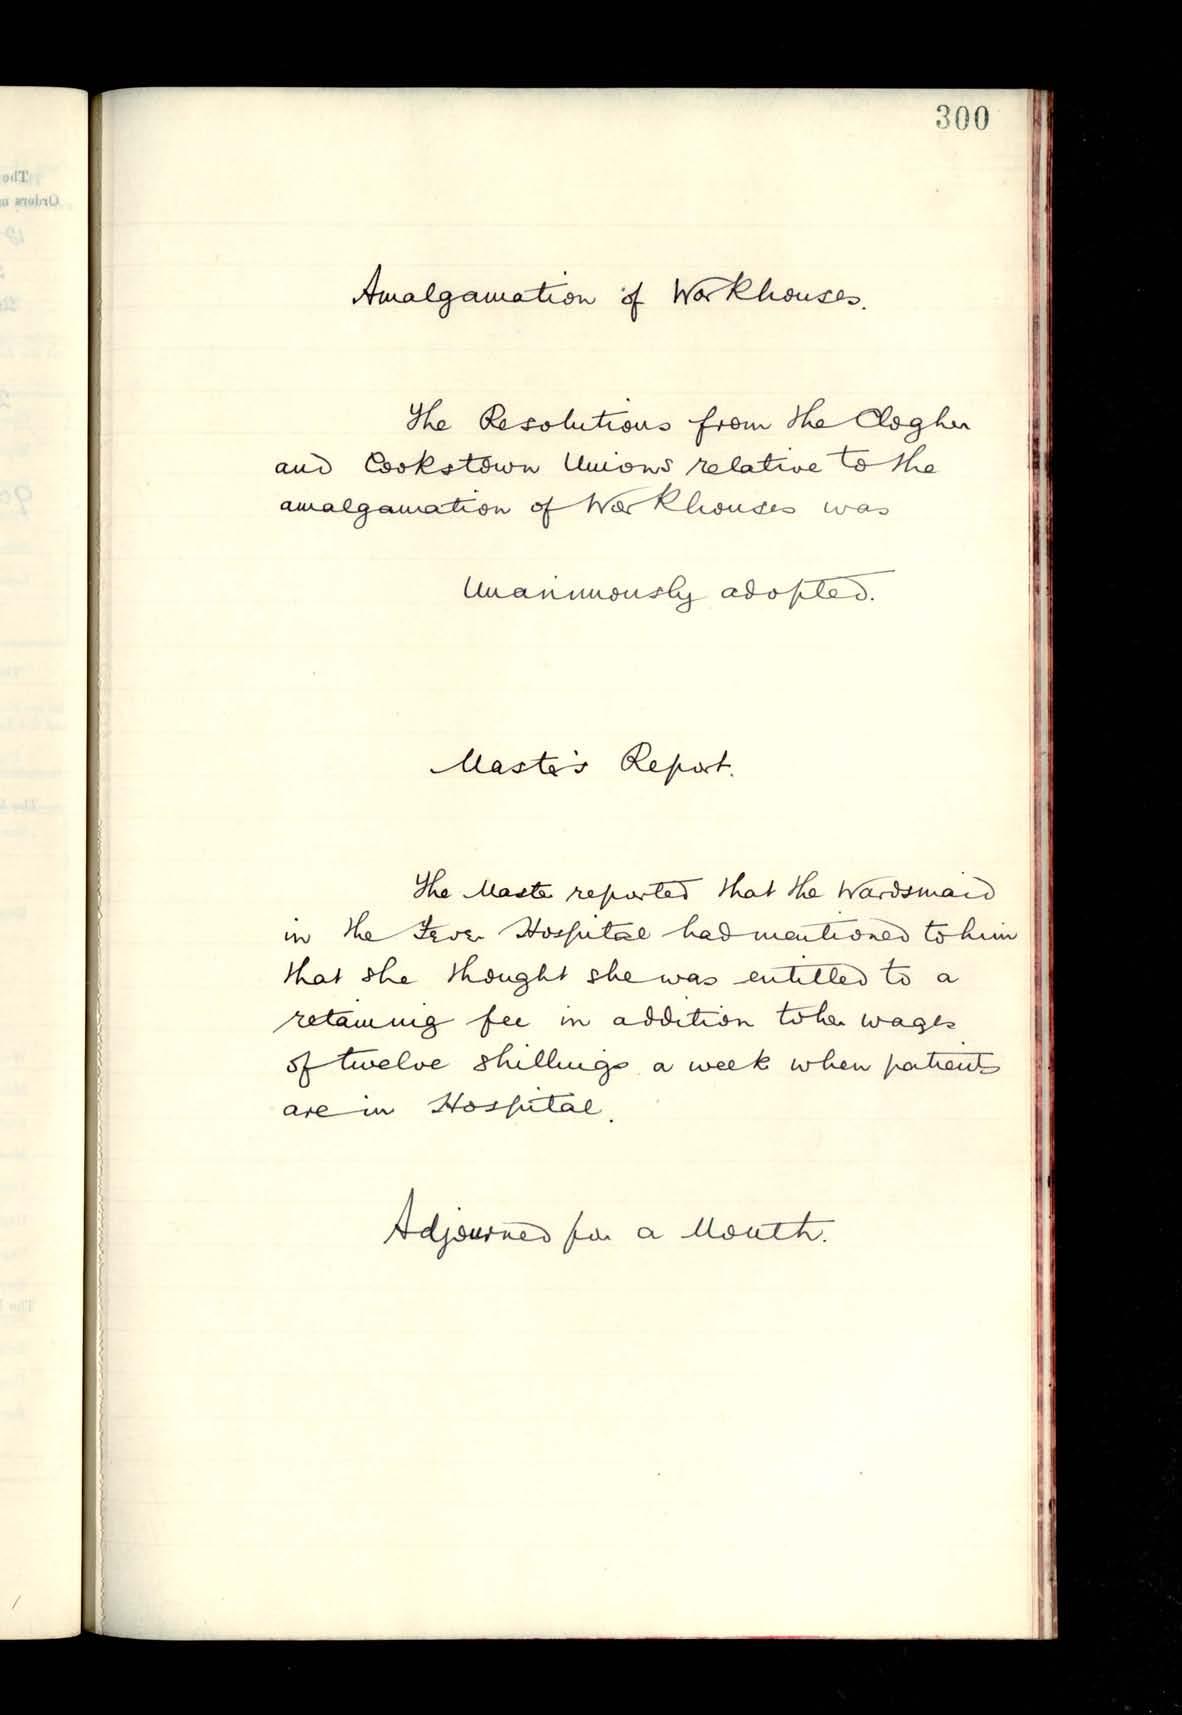 300
Amalgamation of Workhouses.
The Resolutions from the Clogher
and Cookstown Unions relative to the
amalgamation of Workhouses was
Unanimously adopted.
Master's Report.
The Master reported that the Wardsmaid
in the Fever Hospital had mentioned to him
that she thought she was entitled to a
retaining fee in addition to her wages
of twelve shillings a week when patients
are in Hospital.
Adjourned for a Month.